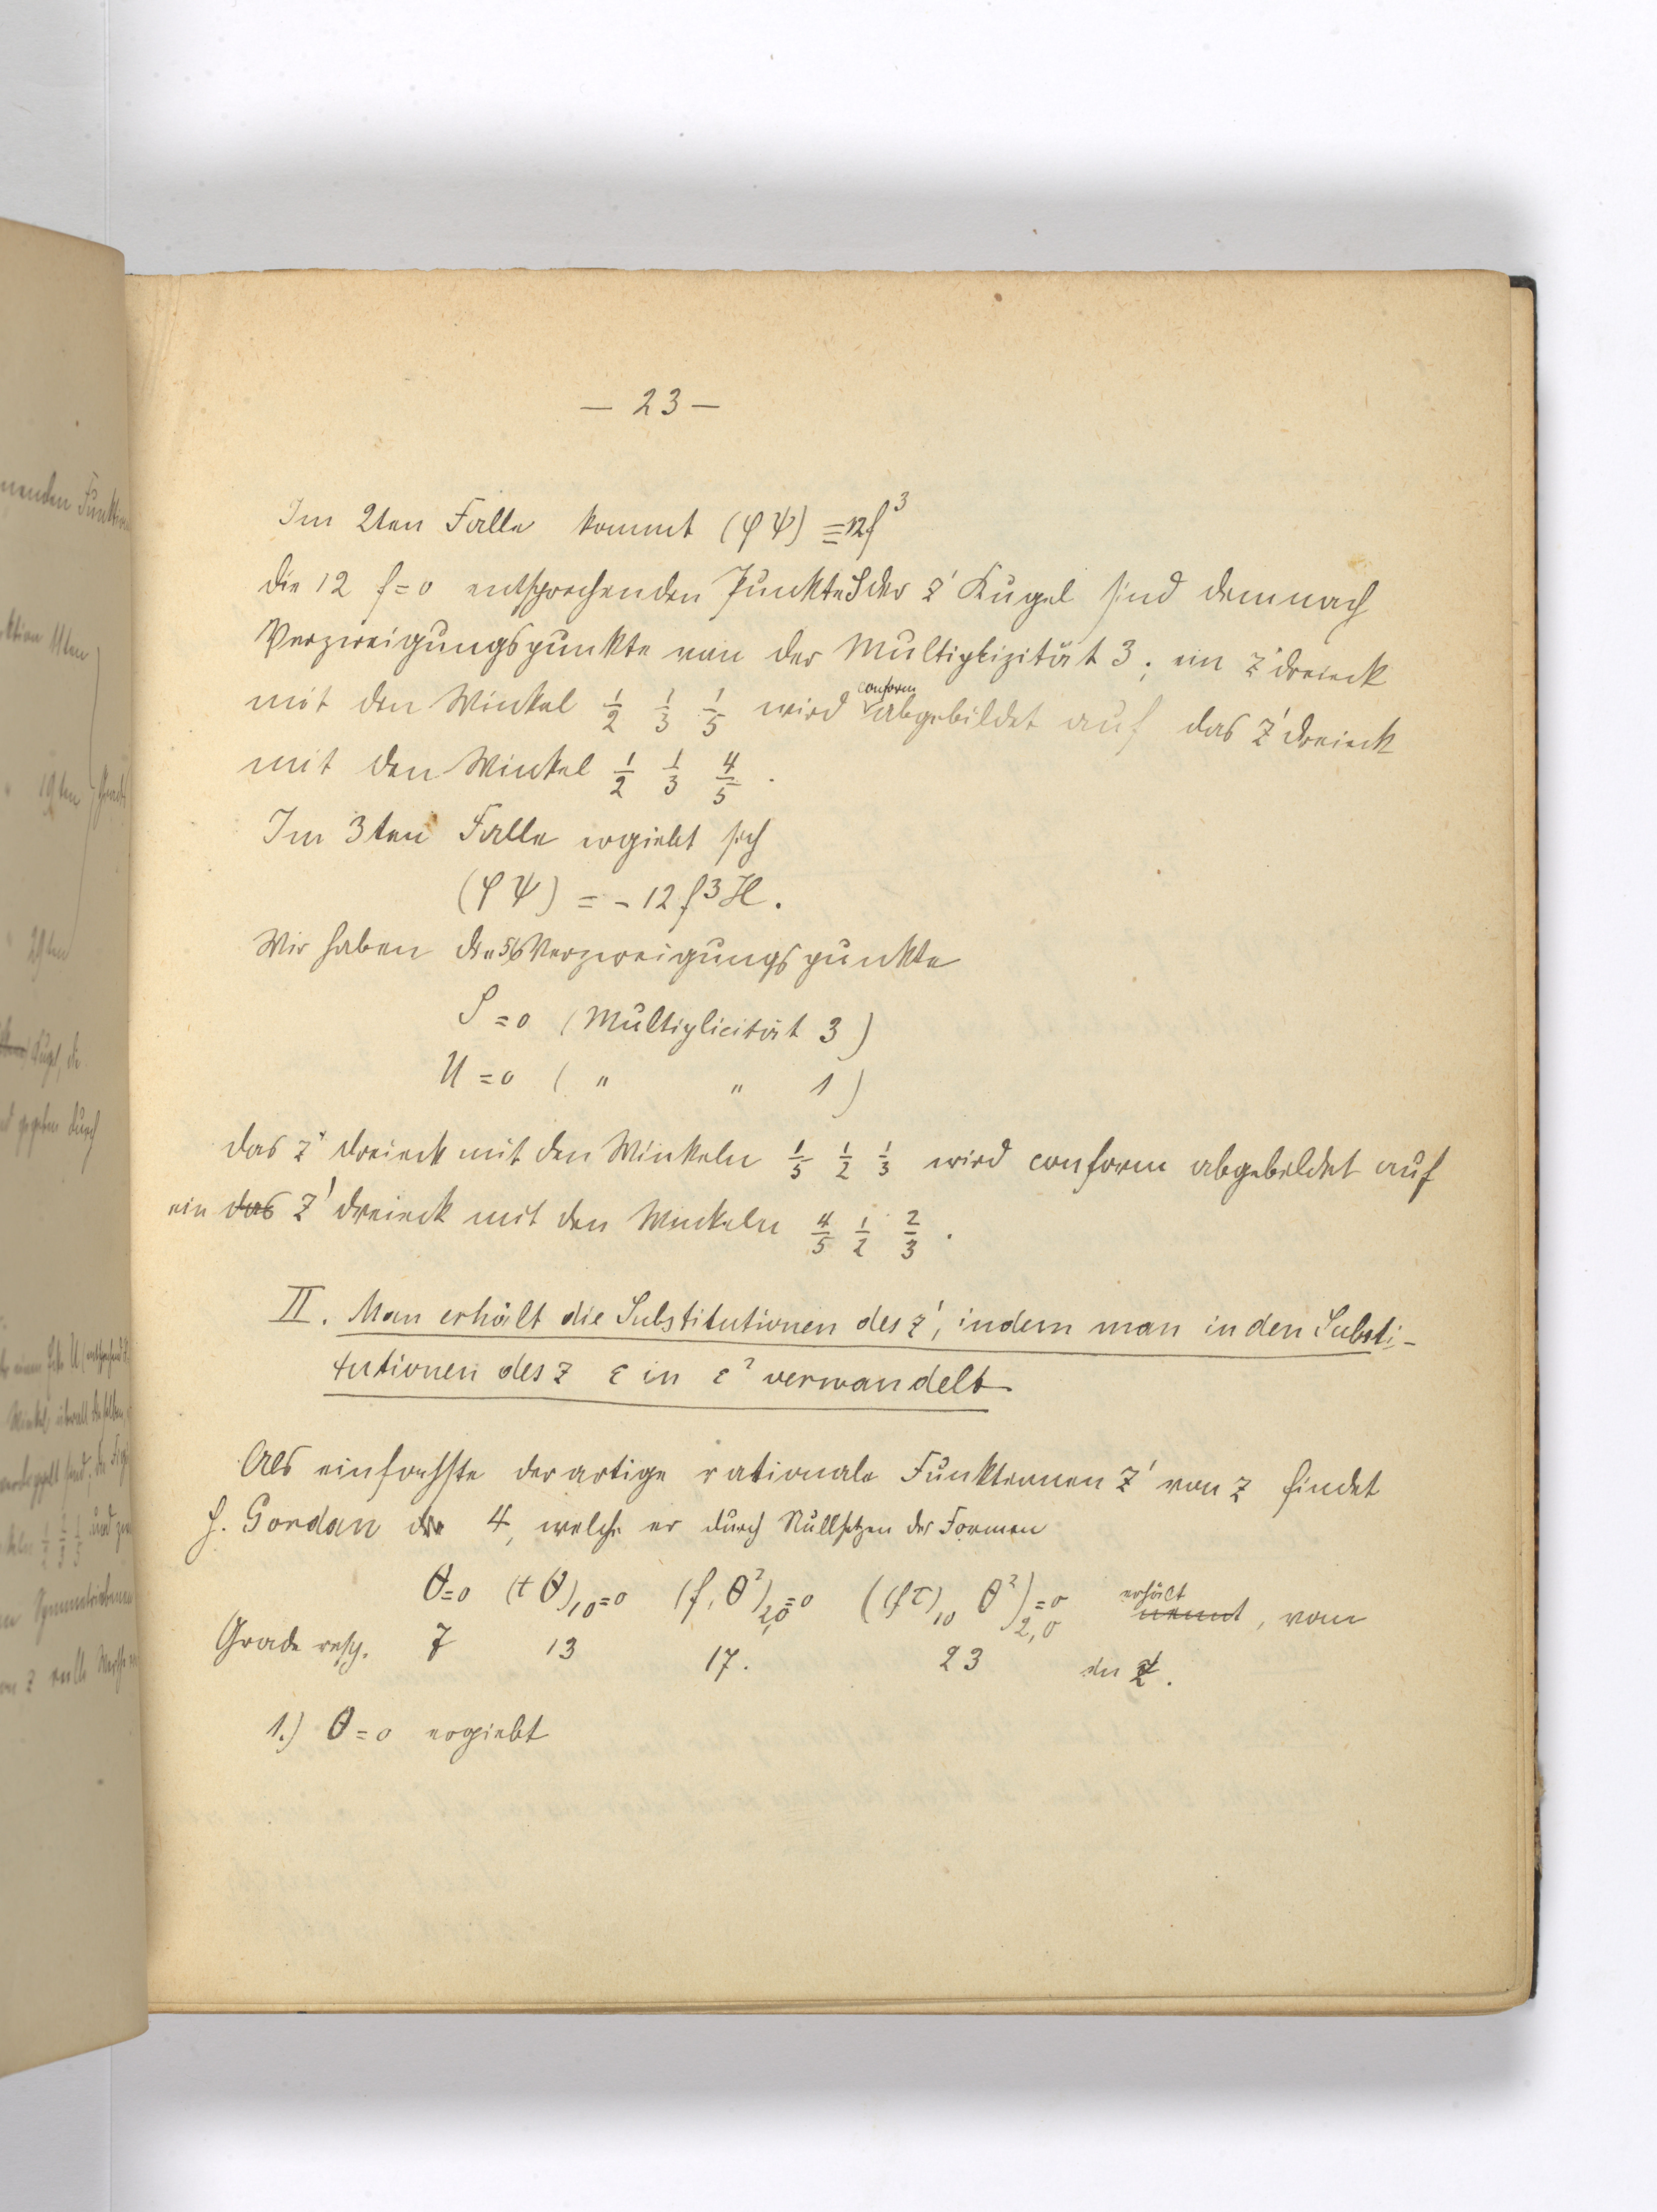 — 23 —
Im 2ten Falle kommt (φ ψ) = 12f³
die 12 f=0 entsprechenden Punkte der z' Kugel sind demnach
Verzweigungspunkte von der Multiplizität 3; ein z dreieck
mit den Winkel 1/2 1/3 1/5 wird conform abgebildet auf das z' dreieck
mit den Winkel 1/2 1/3 4/5.
Im 3ten Falle ergiebt sich
(φ ψ) = -12 f³H.
Wir haben die 56 Verzweigungspunkte
f=0 (Multiplicität 3)
H=0 ( " " 1)
das z dreieck mit den Winkeln 1/5 1/2 1/3 wird conform abgebildet auf
ein das z' dreieck mit den Winkeln 4/5 1/2 2/3.
II. Man erhält die Substitutionen des z', indem man in den Substi-
tutionen des z ε in ε² verwandelt
Als einfachste derartige rationale Funktionen z' von z findet
H. Gordan die 4, welche er durch Nullsetzen der Formen
θ=0 (t θ)₁₀=0 (f, θ²)₂,₀=0 ((fτ)₁₀ θ²)₂,₀=0 erhält nennt, vom
Grade resp. 7 13 17. 23 in z.
1.) θ=0 ergiebt